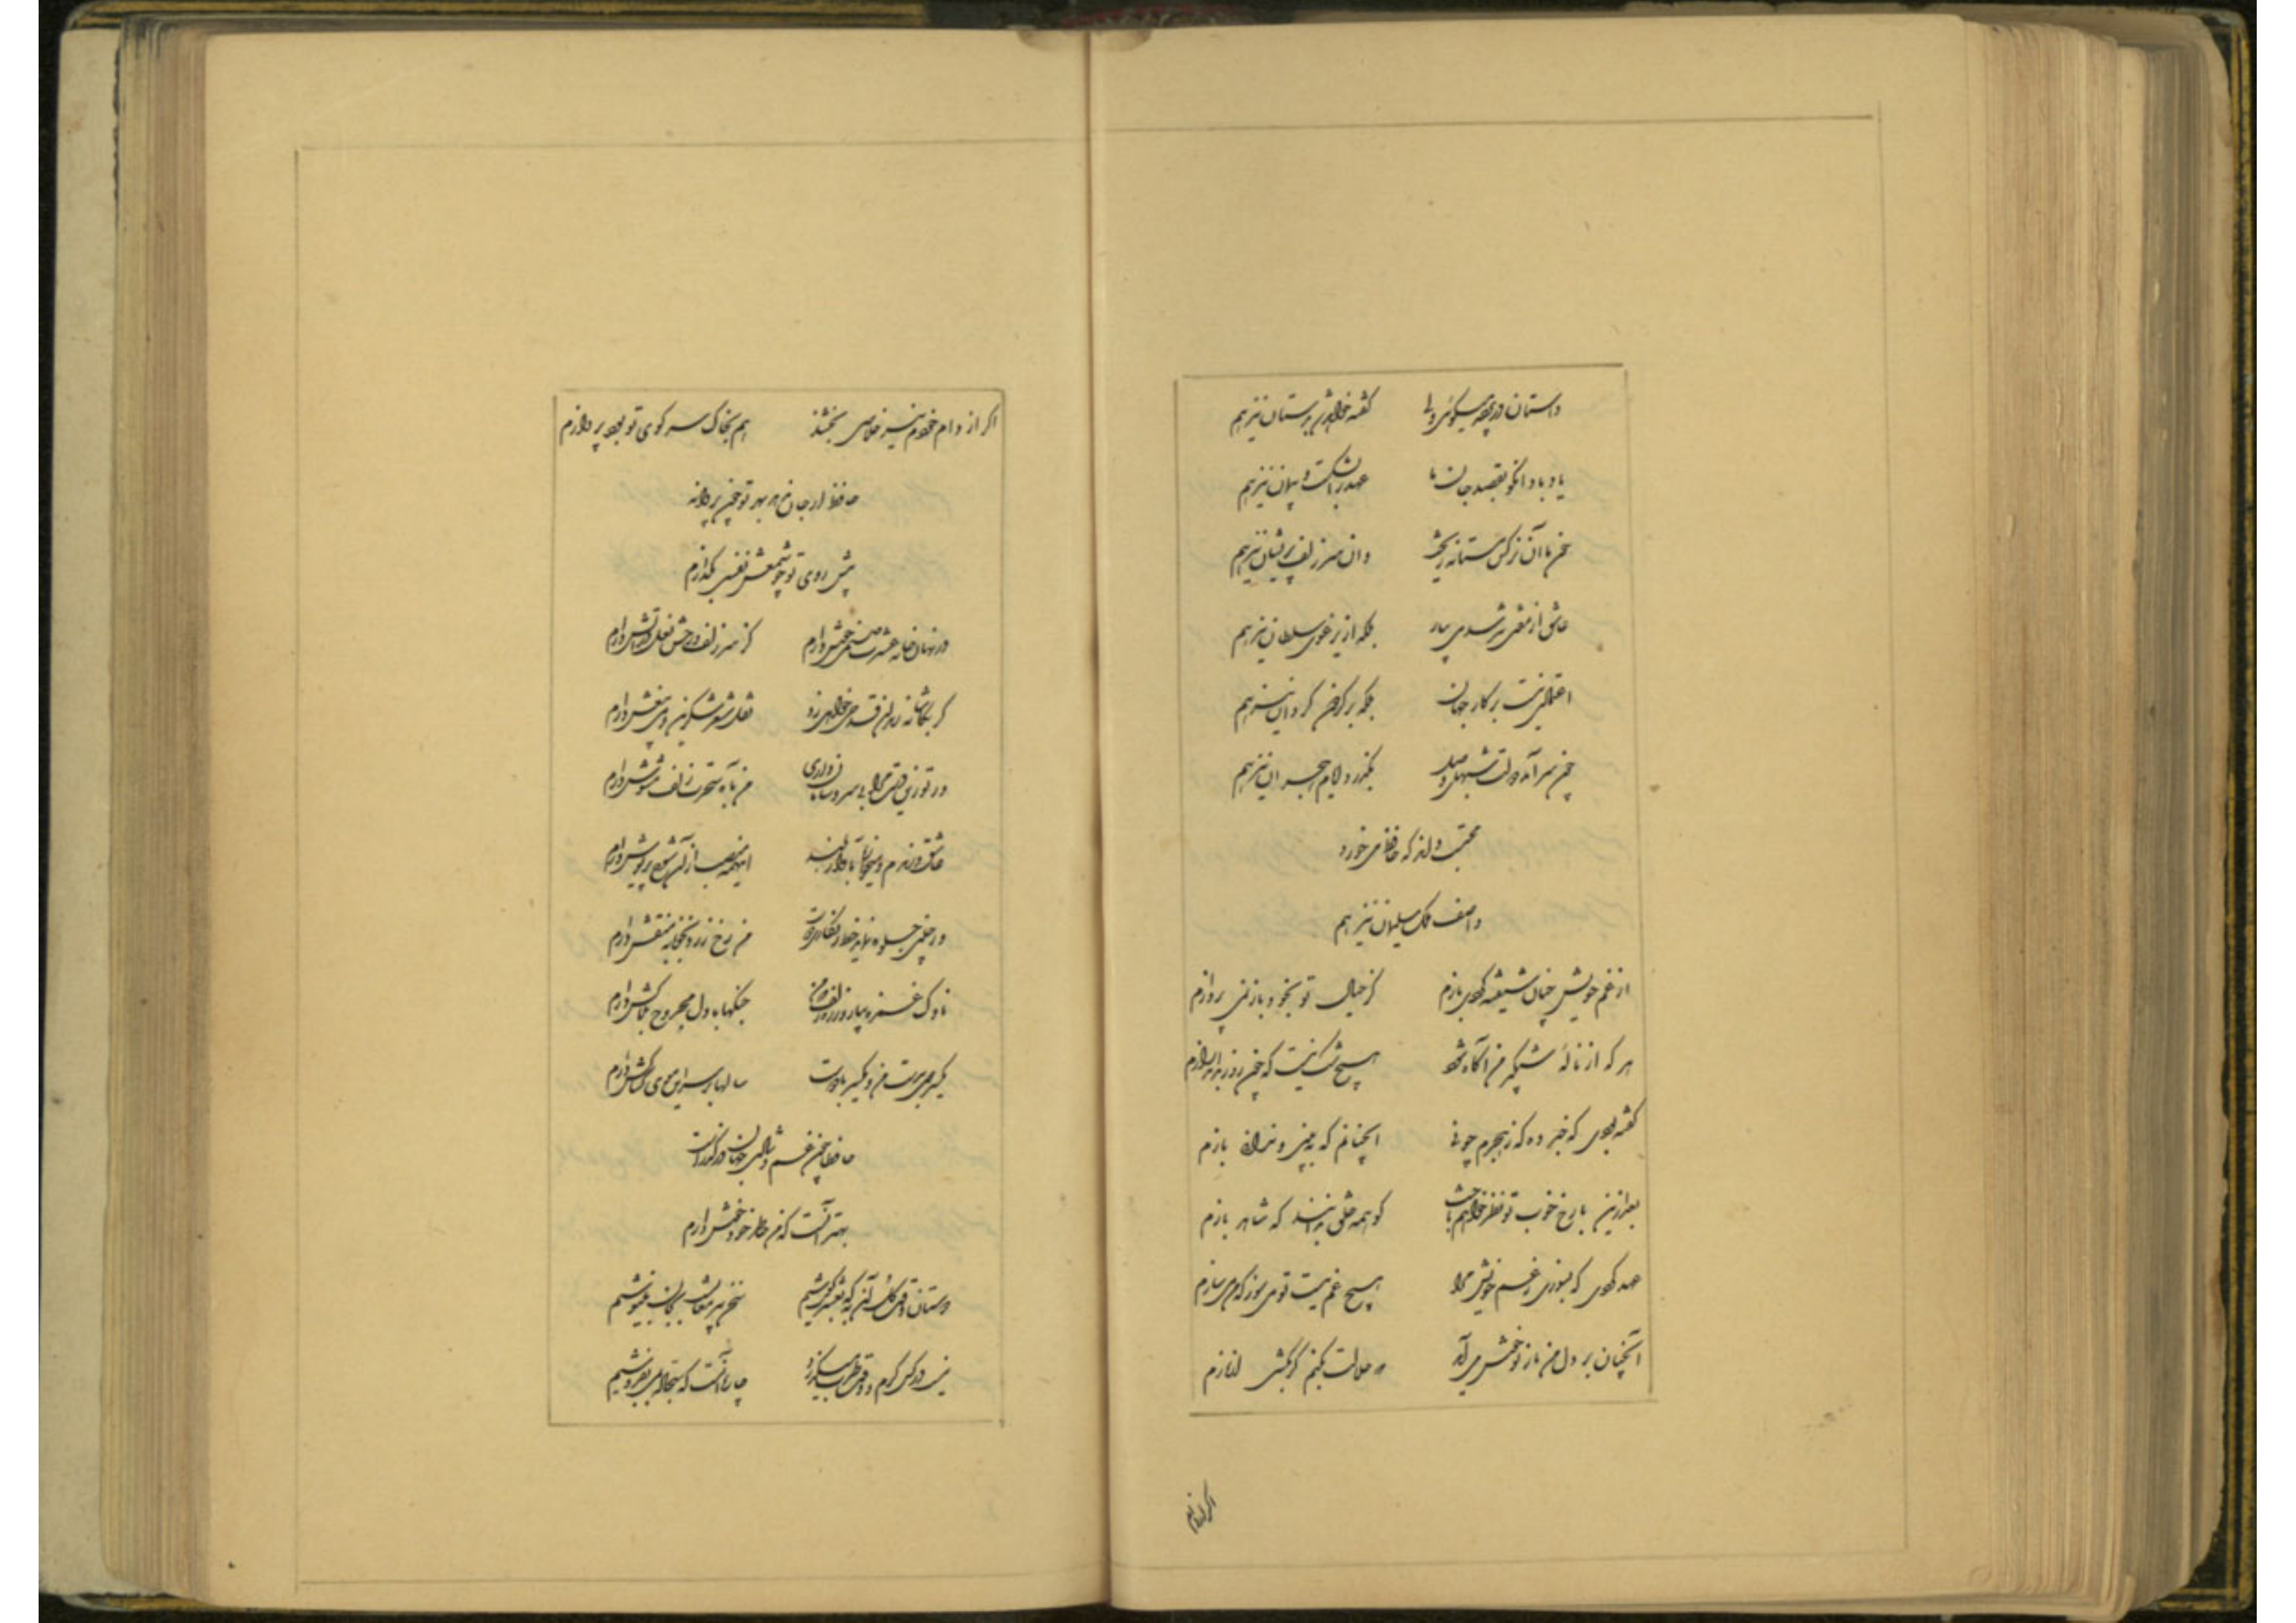 داستان در پرده میگویم ولی گفته خواهد شد بدستان نیز هم
یاد باد آنکو بقصد جان ما عهد را بشکست و پیمان نیز هم
خون ما آن نرگس مستانه ریخت وان سر زلف پریشان نیز هم
عاشق از مفتی نترسد می بیار بلکه از یرغوی سلطان نیز هم
اعتمادی نیست بر کار جهان بلکه بر گردون گردان نیز هم
چون سر آمد دولت شبهای وصل بگذرد ایام هجران نیز هم
محتسب داند که حافظ می خورد
واصف ملک سلیمان نیز هم
از غم خویش چنان شیفته کردی بازم کز خیال تو بخود باز نمی پردازم
هر که از نالهٔ شبگیر من آگاه شود هیچ شک نیست که چون روز بداند رازم
گفته بودی که خبر ده که ز هجرم چونی آنچنانم که ببینی و ندانی بازم
بعد ازین با رخ خوب تو نظر خواهم باخت گو همه خلق بدانند که شاهد بازم
عهد کردی که بسوزی ز غم خویش مرا هیچ غم نیست تو می سوز که من می سازم
آنچنان بر دل من ناز تو خوش می آید حلالت بکنم گر بکشی از نازم
اگر از دام
اگر از دام خودم نیز خلاصی بخشند هم بخاک سر کوی تو بود پروازم
حافظ ار جان ندهد بهر تو چون پروانه
پیش روی تو چو شمعش نفسی بگدازم
در نهانخانه عشرت صنمی خوش دارم کز سر زلف و رخش نعل در آتش دارم
گر بکاشانه رندان قدمی خواهی زد نقل شعر شکرین و می بیغش دارم
ور تو زین دست مرا بی سر و سامان داری من بآه سحرت زلف مشوش دارم
عاشق و رندم و میخواره بآواز بلند اینهمه منصب از آن شوخ پریوش دارم
ور چنین جلوه نماید خط زنگاری دوست من رخ زرد بخونابه منقش دارم
ناوک غمزه بیار و زره زلف که من جنگها با دل مجروح بلاکش دارم
یکسر موی بدست من و یکسر با دوست سالها بر سر این موی کشاکش دارم
حافظا چون غم و شادی جهان در گذر است
بهتر آنست که من خاطر خود خوش دارم
دوستان وقت گل آن به که بعشرت کوشیم سخن پیر مغانست بجان بنیوشیم
نیست در کس کرم و وقت طرب میگذرد چاره آنست که سجاده بمی بفروشیم